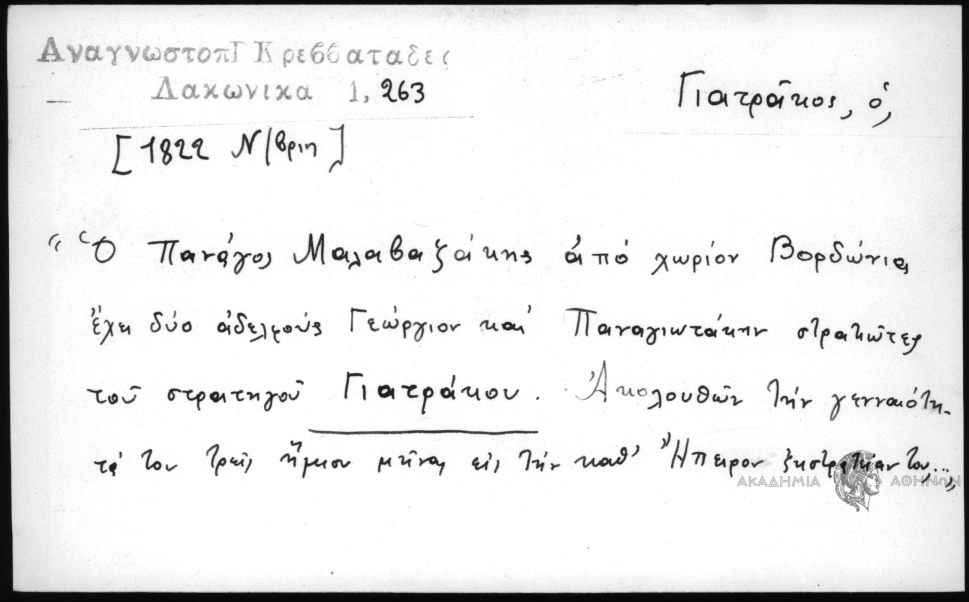 ΑναγνωστοπΓ Κρεββαταδες
Λακωνικα 1, 263
Γιατρᾶκος, ὁ,
[1822 Ν/βριη]
"Ὁ Πανάγος Μαλαβαζάκης ἀπό χωρίον Βορδώνια
ἔχει δύο ἀδελφούς Γεώργιον καί Παναγιωτάκην στρατιῶτες
τοῦ στρατηγοῦ Γιατράκου. Ἀκολουθῶν τήν γενναιότη-
τά του τρεῖς ἥμισυ μῆνας εἰς τήν καθ' Ἤπειρον ἐκστρατείαν του..."
ΑΚΑΔΗΜΙΑ ΑΘΗΝΩΝ